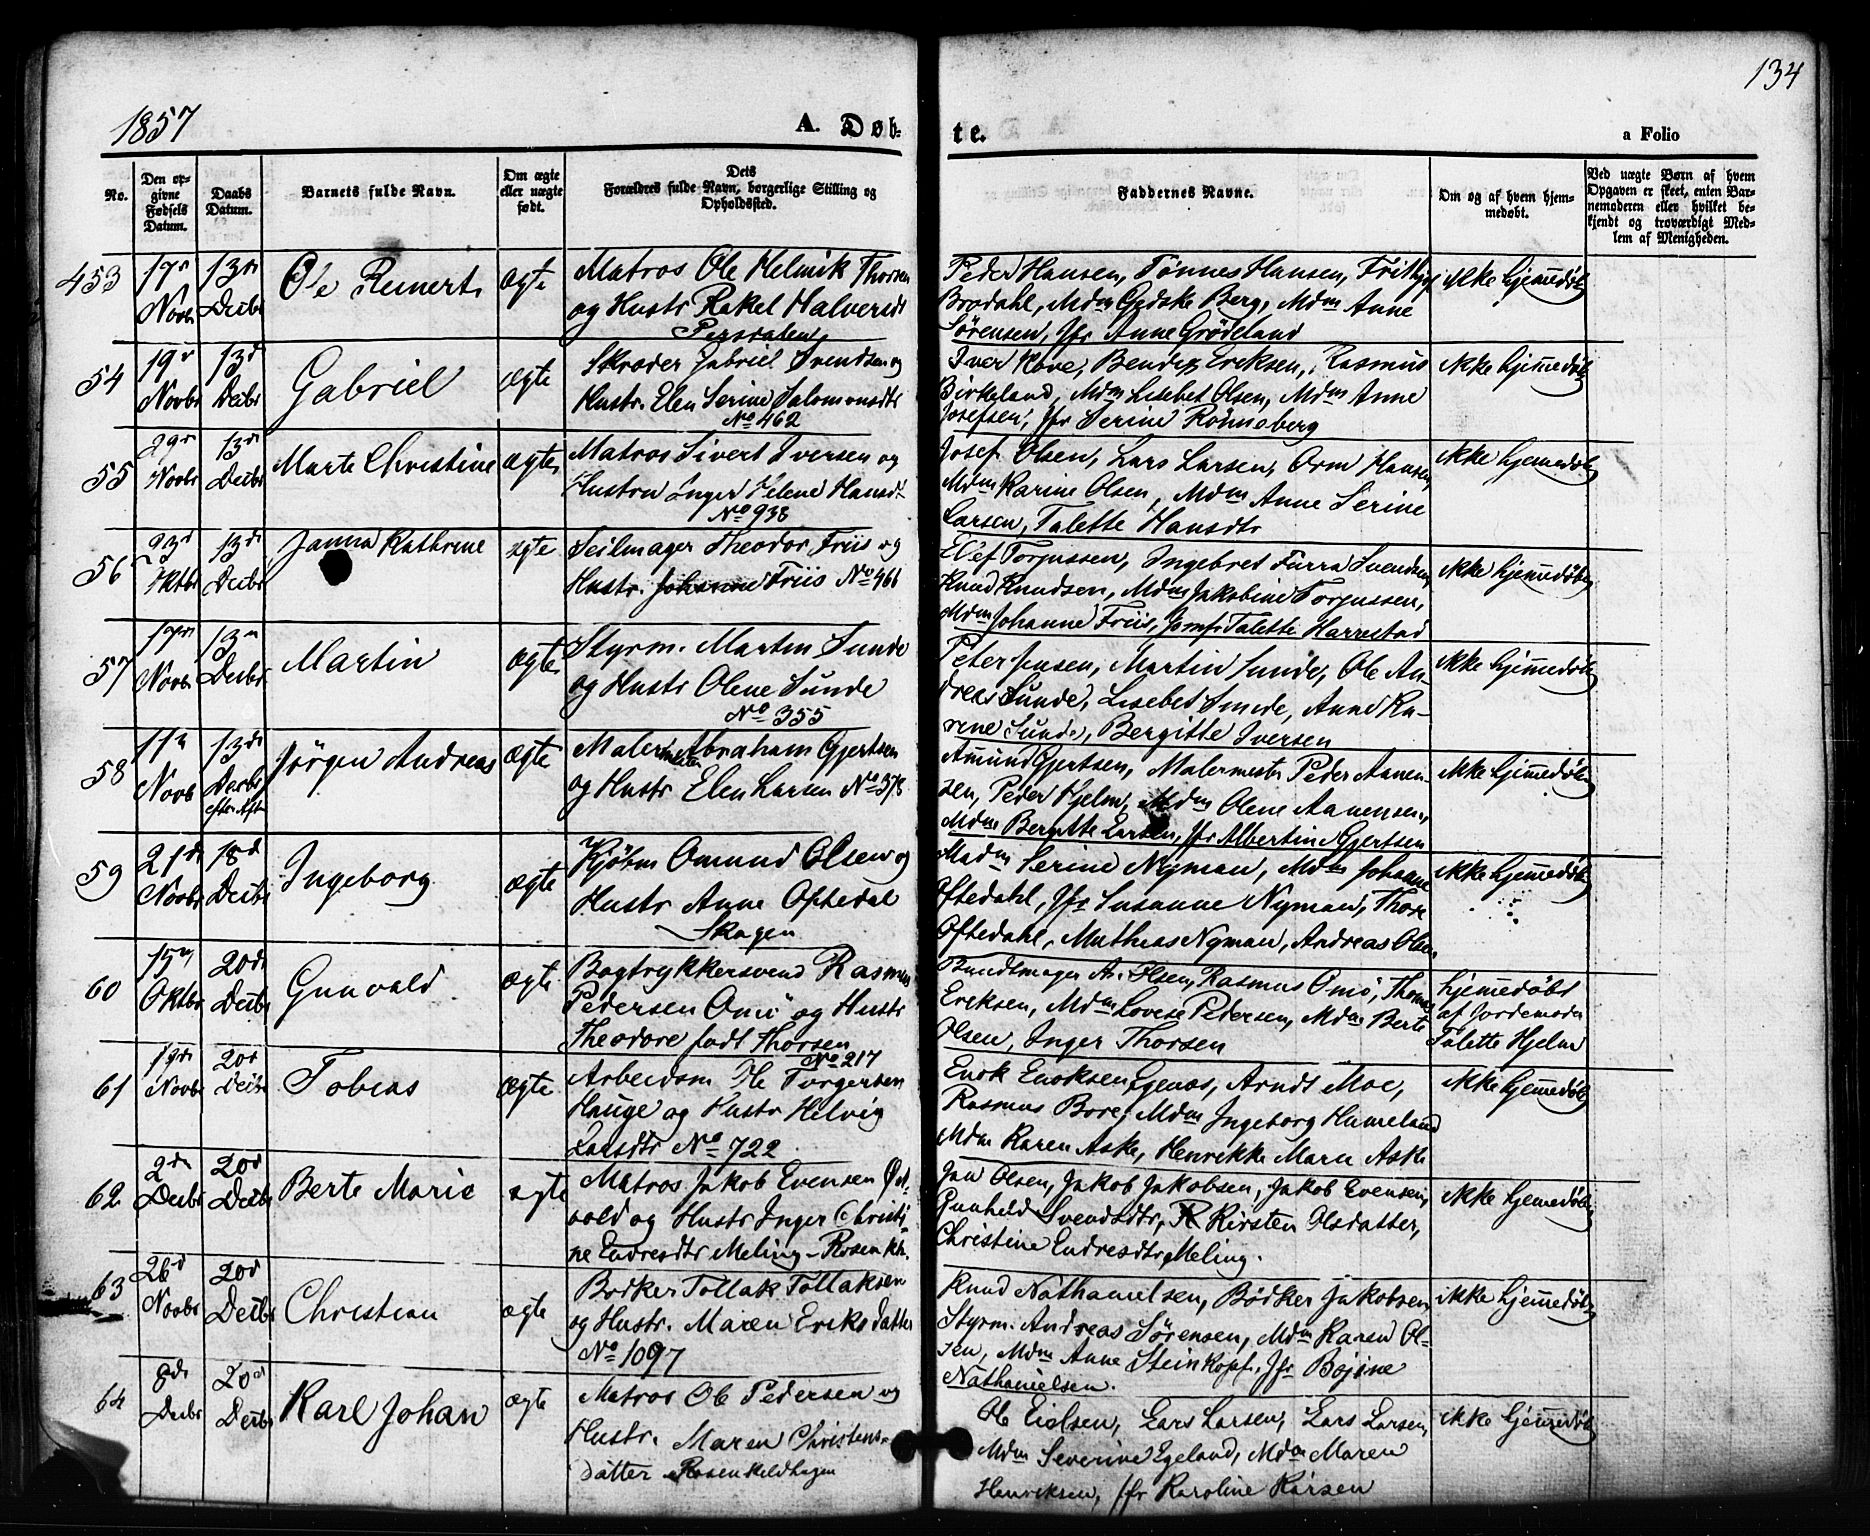 134
1857
A. Døb-
te.
a Folio
No.
Den op-
givne
Fødsels
Datum.
Daabs
Datum.
Barnets fulde Navn.
Om ægte
eller uægte
født.
Dets
Forældres fulde Navn, borgerlige Stilling og
Opholdssted.
Faddernes Navne.
Om og af hvem hjem-
medøbt.
Ved uægte Børn af hvem
Opgaven er skeet, enten Bar-
nemoderen eller hvilket be-
kjendt og troværdigt Med-
lem af Menigheden.
453
17
Novbr
13
Decbr
Ole Reinert
ægte
Matros Ole Helmik Thorsen
og Hustr Rakel Halversdt
Peder Hansen, Tønnes Hansen,
Brodahl, Mdm Gidske Berg, Mdm Anne
Sørensen, Jfr Anne Grødeland
ikke hjemmedøbt
54
19
Novbr
13d
Decbr
Gabriel
ægte
Skræder Gabriel Svendsen og
Hustr. Elen Serine Salomonsdtr
No 462
Iver Hove, Bendix Ericksen, Rasmus
Birkeland, Mdm Lisebet Olsen, Mdm Anne
Josefsen, Jfr Serine Rønneberg
ikke hjemmedøbt
55
29
Novbr
13
Decbr
Marte Christine
ægte
Matros Sivert Iversen og
Hustru Inger Helene Hansdt
No 938
Josef Olsen, Lars Larsen, Orm Hansen,
Mdm Karine Olsen, Mdm Anne Serine
Larsen, Talette Hansdtr
ikke hjemmedøbt
56
23d
Oktbr
13d
Decbr
Janna Kathrine
ægte
Seilmager Theodor Friis og
Hustr. Johanne Friis No 466
Elef Torjussen, Ingebret Furra Svendsen,
Knud Knudsen, Mdm Jakobine Torjussen,
Mdm Johanne Friis, Jomfr Talette Harrestad
ikke hjemmedøbt
57
Novbr
13
Decbr
Martin
ægte
Styrm. Martin Sunde
og Hustr Olene Sunde
No 355
Peter Jensen, Martin Sunde, Ole An-
dreas Sunde, Lisebet Smede, Anne Ka-
rine Sunde, Bergitte Iversen
ikke hjemmedøbt
58
11
Novb
13d
Decbr
Jørgen Andreas
ægte
Maler Abraham Gjertsen
og Hustr Elen Larsen No 378
Amund Gjertsen, Malermester Peder Aanen-
sen, Peder Hjelm, Mdm Olene Aanensen,
Mdm Bergitte Larsen, Jfr Albertine Gjertsen
ikke hjemmedøbt
59
21d
Novbr
18d
Decbr
Ingeborg
ægte
Kjøbm Omund Olsen og
Hustr Anne Oftedal
Skagen
Madm Serine Nyman, Mdm Johanne
Oftedahl, Jfr Susanne Nyman, Thore
Oftedahl, Mathias Nyman, Andreas Olsen
ikke hjemmedøbt
60
15
Oktbr
20d
Decbr
Gunvald
ægte
Bogtrykkersvend Rasmus
Pedersen Omö og Hustr
Theodore født Thorsen
No 217
Bundtmager A. Olsen, Rasmus Omö, Thomas
Ericksen, Mdm Lovise Pedersen, Mdm Berte
Olsen, Inger Thorsen
hjemmedøbt
af Jordemoder
Talette Hjelm
61
19
Novbr
20d
Decbr
Tobias
ægte
Arbeidsm Ole Torgersen
Hauge og Hustr Helvig
Larsdtr No 722
Enok Enoksen Egenæs, Arndt Moe,
Rasmus Bore, Mdm Ingeborg Hameland
Mdm Karen Aske, Henrikke Marie Aske
ikke hjemmedøbt
62
2
Decbr
20d
Decbr
Berte Marie
ægte
Matros Jakob Evensen Øst-
vold og Hustr Inger Christi-
ne Endresdtr Meling - Rosenkh.
Jan Olsen, Jakob Jakobsen, Jakob Evensen,
Gunheld Svendsdtr, Kirsten Olsdatter,
Christine Endresdtr Meling.
ikke hjemmedøbt
63
26d
Novbr
20d
Decbr
Christian
ægte
Bødker Tollak Tollaksen
og Hustr. Maren Eriksdatter
No 1097
Knud Nathanielsen, Bödker Jakobsen
Styrm. Andreas Sørensen, Mdm Karen Ol-
sen, Mdm Anne Steinkopf, Jfr Bojine
Nathanielsen.
ikke hjemmedøbt
64
8d
Decbr
20d
Decbr
Karl Johan
ægte
Matros Ole Pedersen og
Hustr. Maren Christens-
datter Rosenkildhagen
Ole Eielsen, Lars Larsen, Lars Larsen,
Mdm Severine Egeland, Mdm Maren
Henriksen, Jfr Karoline Karsen
ikke hjemmedøbt